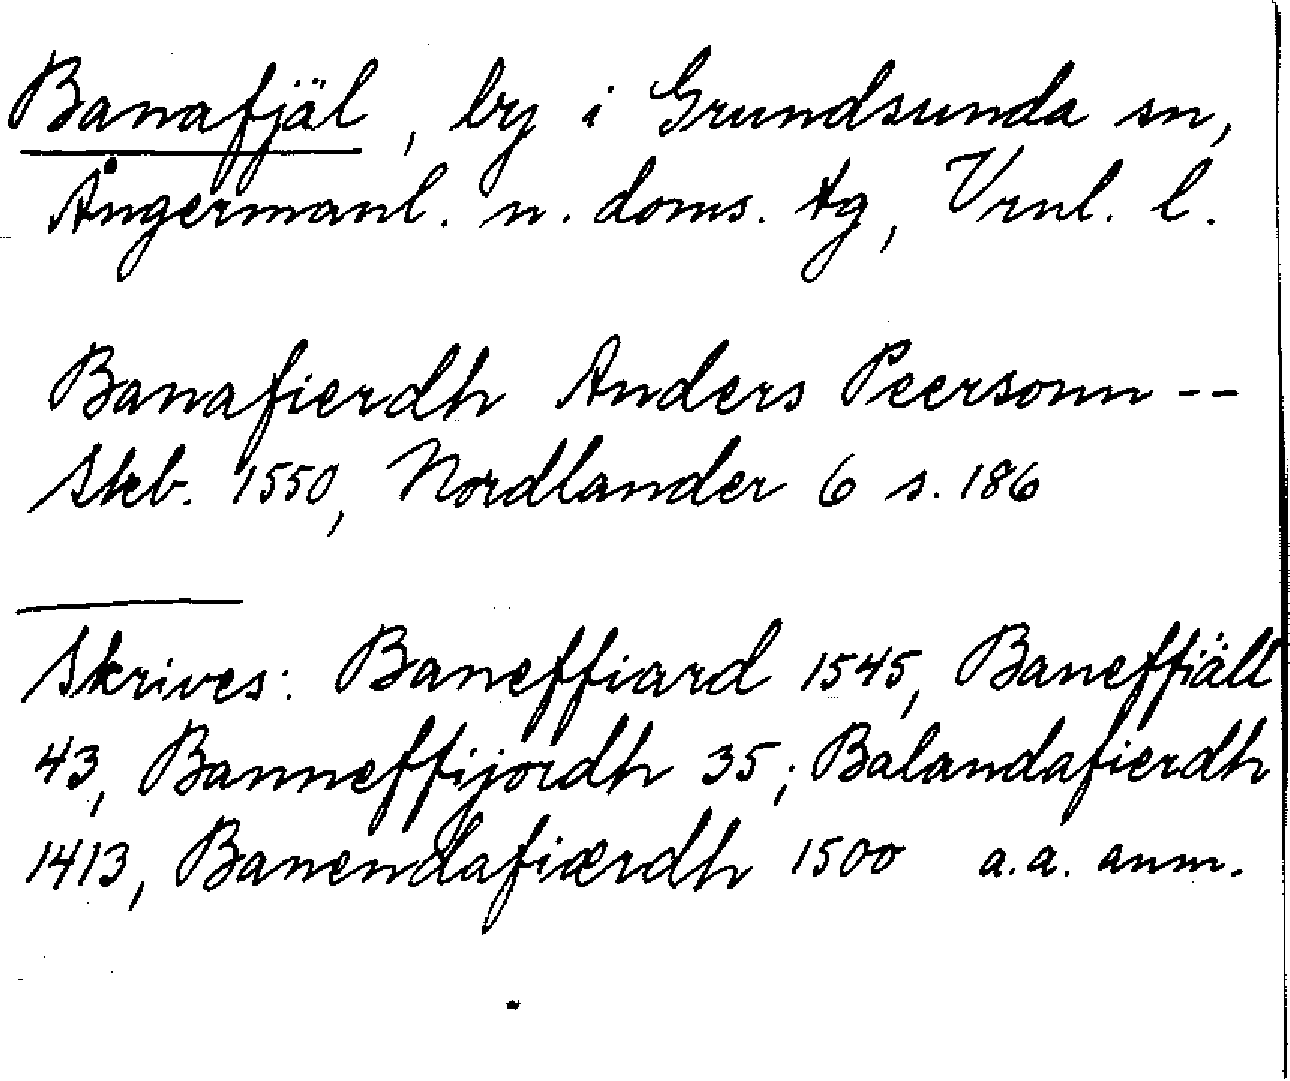 Banafjäl, by i Grundsunda sn,
Ångermanl. n. doms. tg, Vrnl. l.
Banafierdh Anders Peersonn --
Skb. 1550, Nordlander 6 s. 186
Skrives: Baneffiard 1545, Baneffiäll
43, Banneffijordh 35; Balandafierdh
1413, Banendafiærdh 1500 a.a. anm.